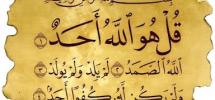 قُلْ هُوَ اللَّهُ أَحَدٌ ١
اللَّهُ الصَّمَدُ ٢ لَمْ يَلِدْ وَلَمْ يُولَدْ ٣
وَلَمْ يَكُن لَّهُ كُفُوًا أَحَدٌ ٤